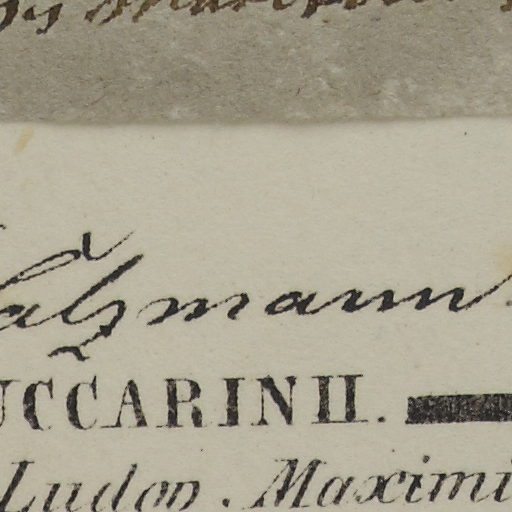 Salzmann.
UCCARINII.
Ludov. Maximi